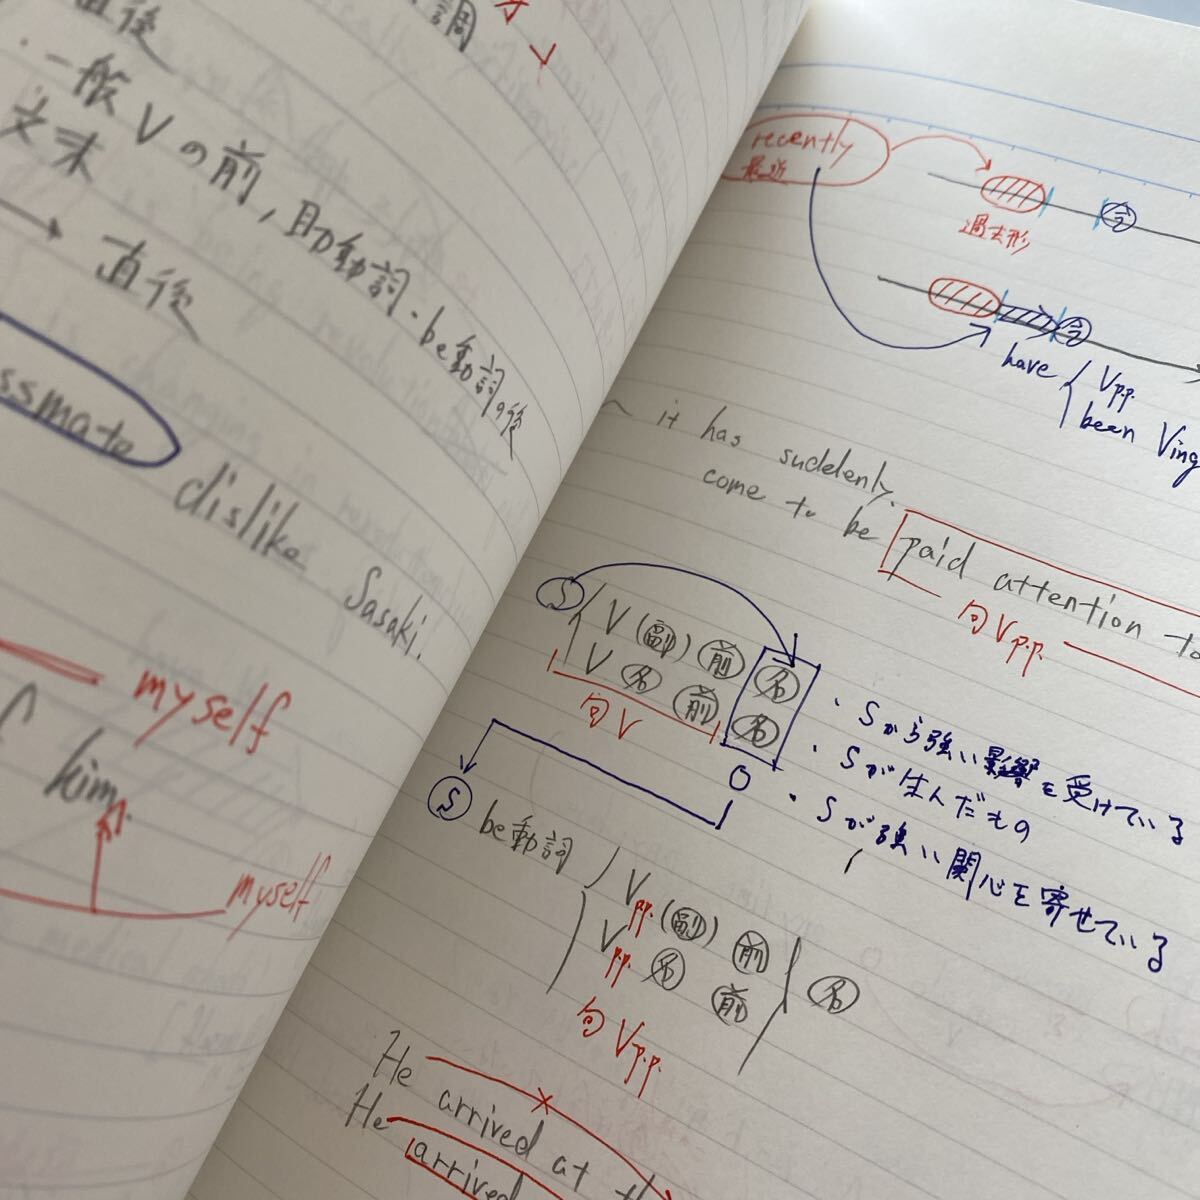 直後
調
・一般Vの前, 助動詞・be動詞の後
文末
→ 直後
ssmate dislike Sasaki.
myself
kim
myself
recently
最近
過去形
今
今
have Vp.p.
been Ving
~ it has suddenly
come to be paid attention to
句Vp.p.
S V (副) 前 名
V 名 前 名
句V
O
・Sから強い影響を受けている
・Sが生んだもの
・Sが強い関心を寄せている
S be動詞 Vp.p. (副) 前
Vp.p. 名 前 名
句Vp.p.
He arrived at th
He arrived